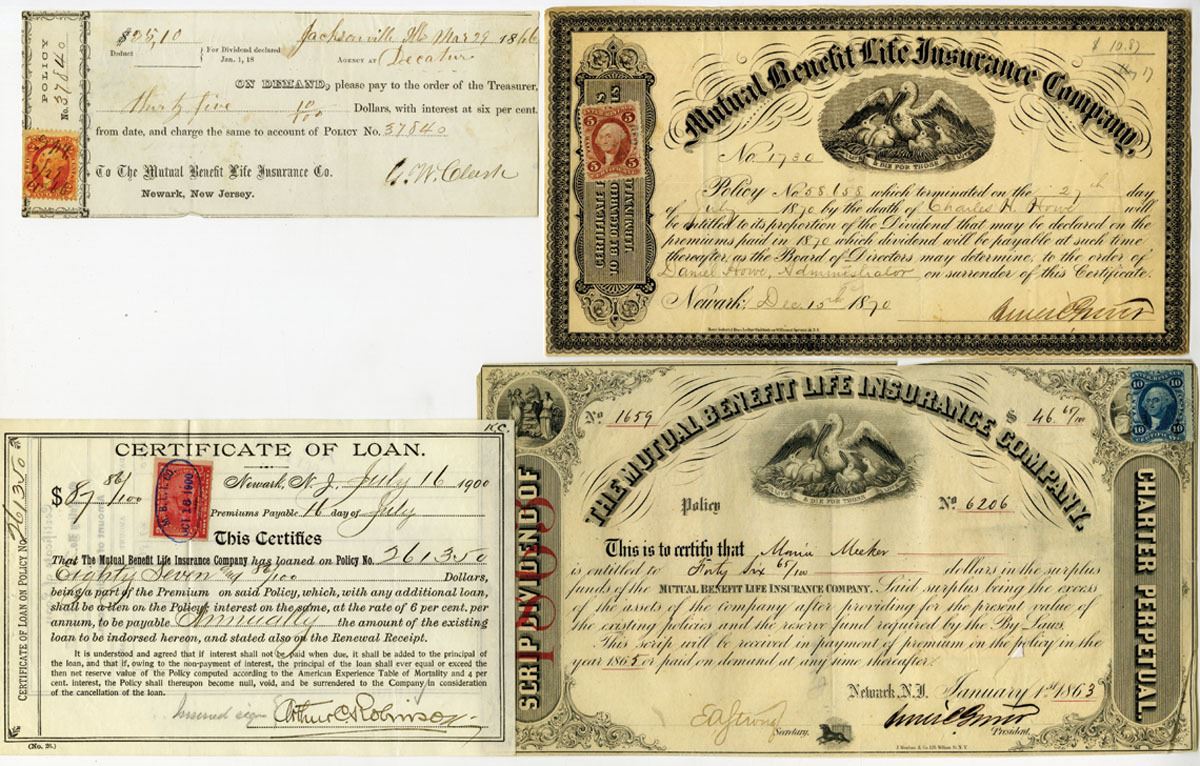 POLICY
No. 37840
$35,10
Deduct
For Dividend declared
Jan. 1, 18
Jacksonville Ills Mar 29 1866
AGENCY AT Decatur
ON DEMAND, please pay to the order of the Treasurer,
Thirty five 10/100 Dollars, with interest at six per cent.
from date, and charge the same to account of POLICY No. 37840
To The Mutual Benefit Life Insurance Co.
Newark, New Jersey.
$ 10.87
Mutual Benefit Life Insurance Company,
& DIE FOR THOSE
5 5
No. 1730
CERTIFICATE
TO BE DISCARD
TERMINATE
Policy No 58658 which terminated on the 27th day
of July 1870 by the death of Charles H. Howe will
be entitled to its proportion of the Dividend that may be declared on the
premiums paid in 1870 which dividend will be payable at such time
thereafter as the Board of Directors may determine, to the order of
Daniel Howe, Administrator on surrender of this Certificate.
Newark, Dec 15th 1870
CERTIFICATE OF LOAN ON POLICY NO. 261350
CERTIFICATE OF LOAN.
$87 86/100
Newark, N. J. July 16 1900
Premiums Payable 16 day of July
M. B. L. I. CO.
OCT 18 1900
This Certifies
That The Mutual Benefit Life Insurance Company has loaned on Policy No. 261350
Eighty Seven 86/100 Dollars,
being a part of the Premium on said Policy, which, with any additional loan,
shall be a lien on the Policy; interest on the same, at the rate of 6 per cent. per
annum, to be payable Annually the amount of the existing
loan to be indorsed hereon, and stated also on the Renewal Receipt.
It is understood and agreed that if interest shall not be paid when due, it shall be added to the principal of
the loan, and that if, owing to the non-payment of interest, the principal of the loan shall ever equal or exceed the
then net reserve value of the Policy computed according to the American Experience Table of Mortality and 4 per
cent. interest, the Policy shall thereupon become null, void, and be surrendered to the Company in consideration
of the cancellation of the loan.
Insured sign Arthur C. Robinson
(No. 26.)
No 1659
THE MUTUAL BENEFIT LIFE INSURANCE COMPANY.
$ 46 65/100
10 10
& DIE FOR THOSE
SCRIP DIVIDEND OF
1865
CHARTER PERPETUAL
Policy No 6206
This is to certify that Maria Meeker
is entitled to Forty Six 65/100 dollars in the surplus
funds of the MUTUAL BENEFIT LIFE INSURANCE COMPANY. Said surplus being the excess
of the assets of the company after providing for the present value of
the existing policies and the reserve fund required by the By-Laws.
This scrip will be received in payment of premiums on the policy in the
year 1865 or paid on demand at any time thereafter.
Newark, N.J. January 1st 1863
Secretary.
President.